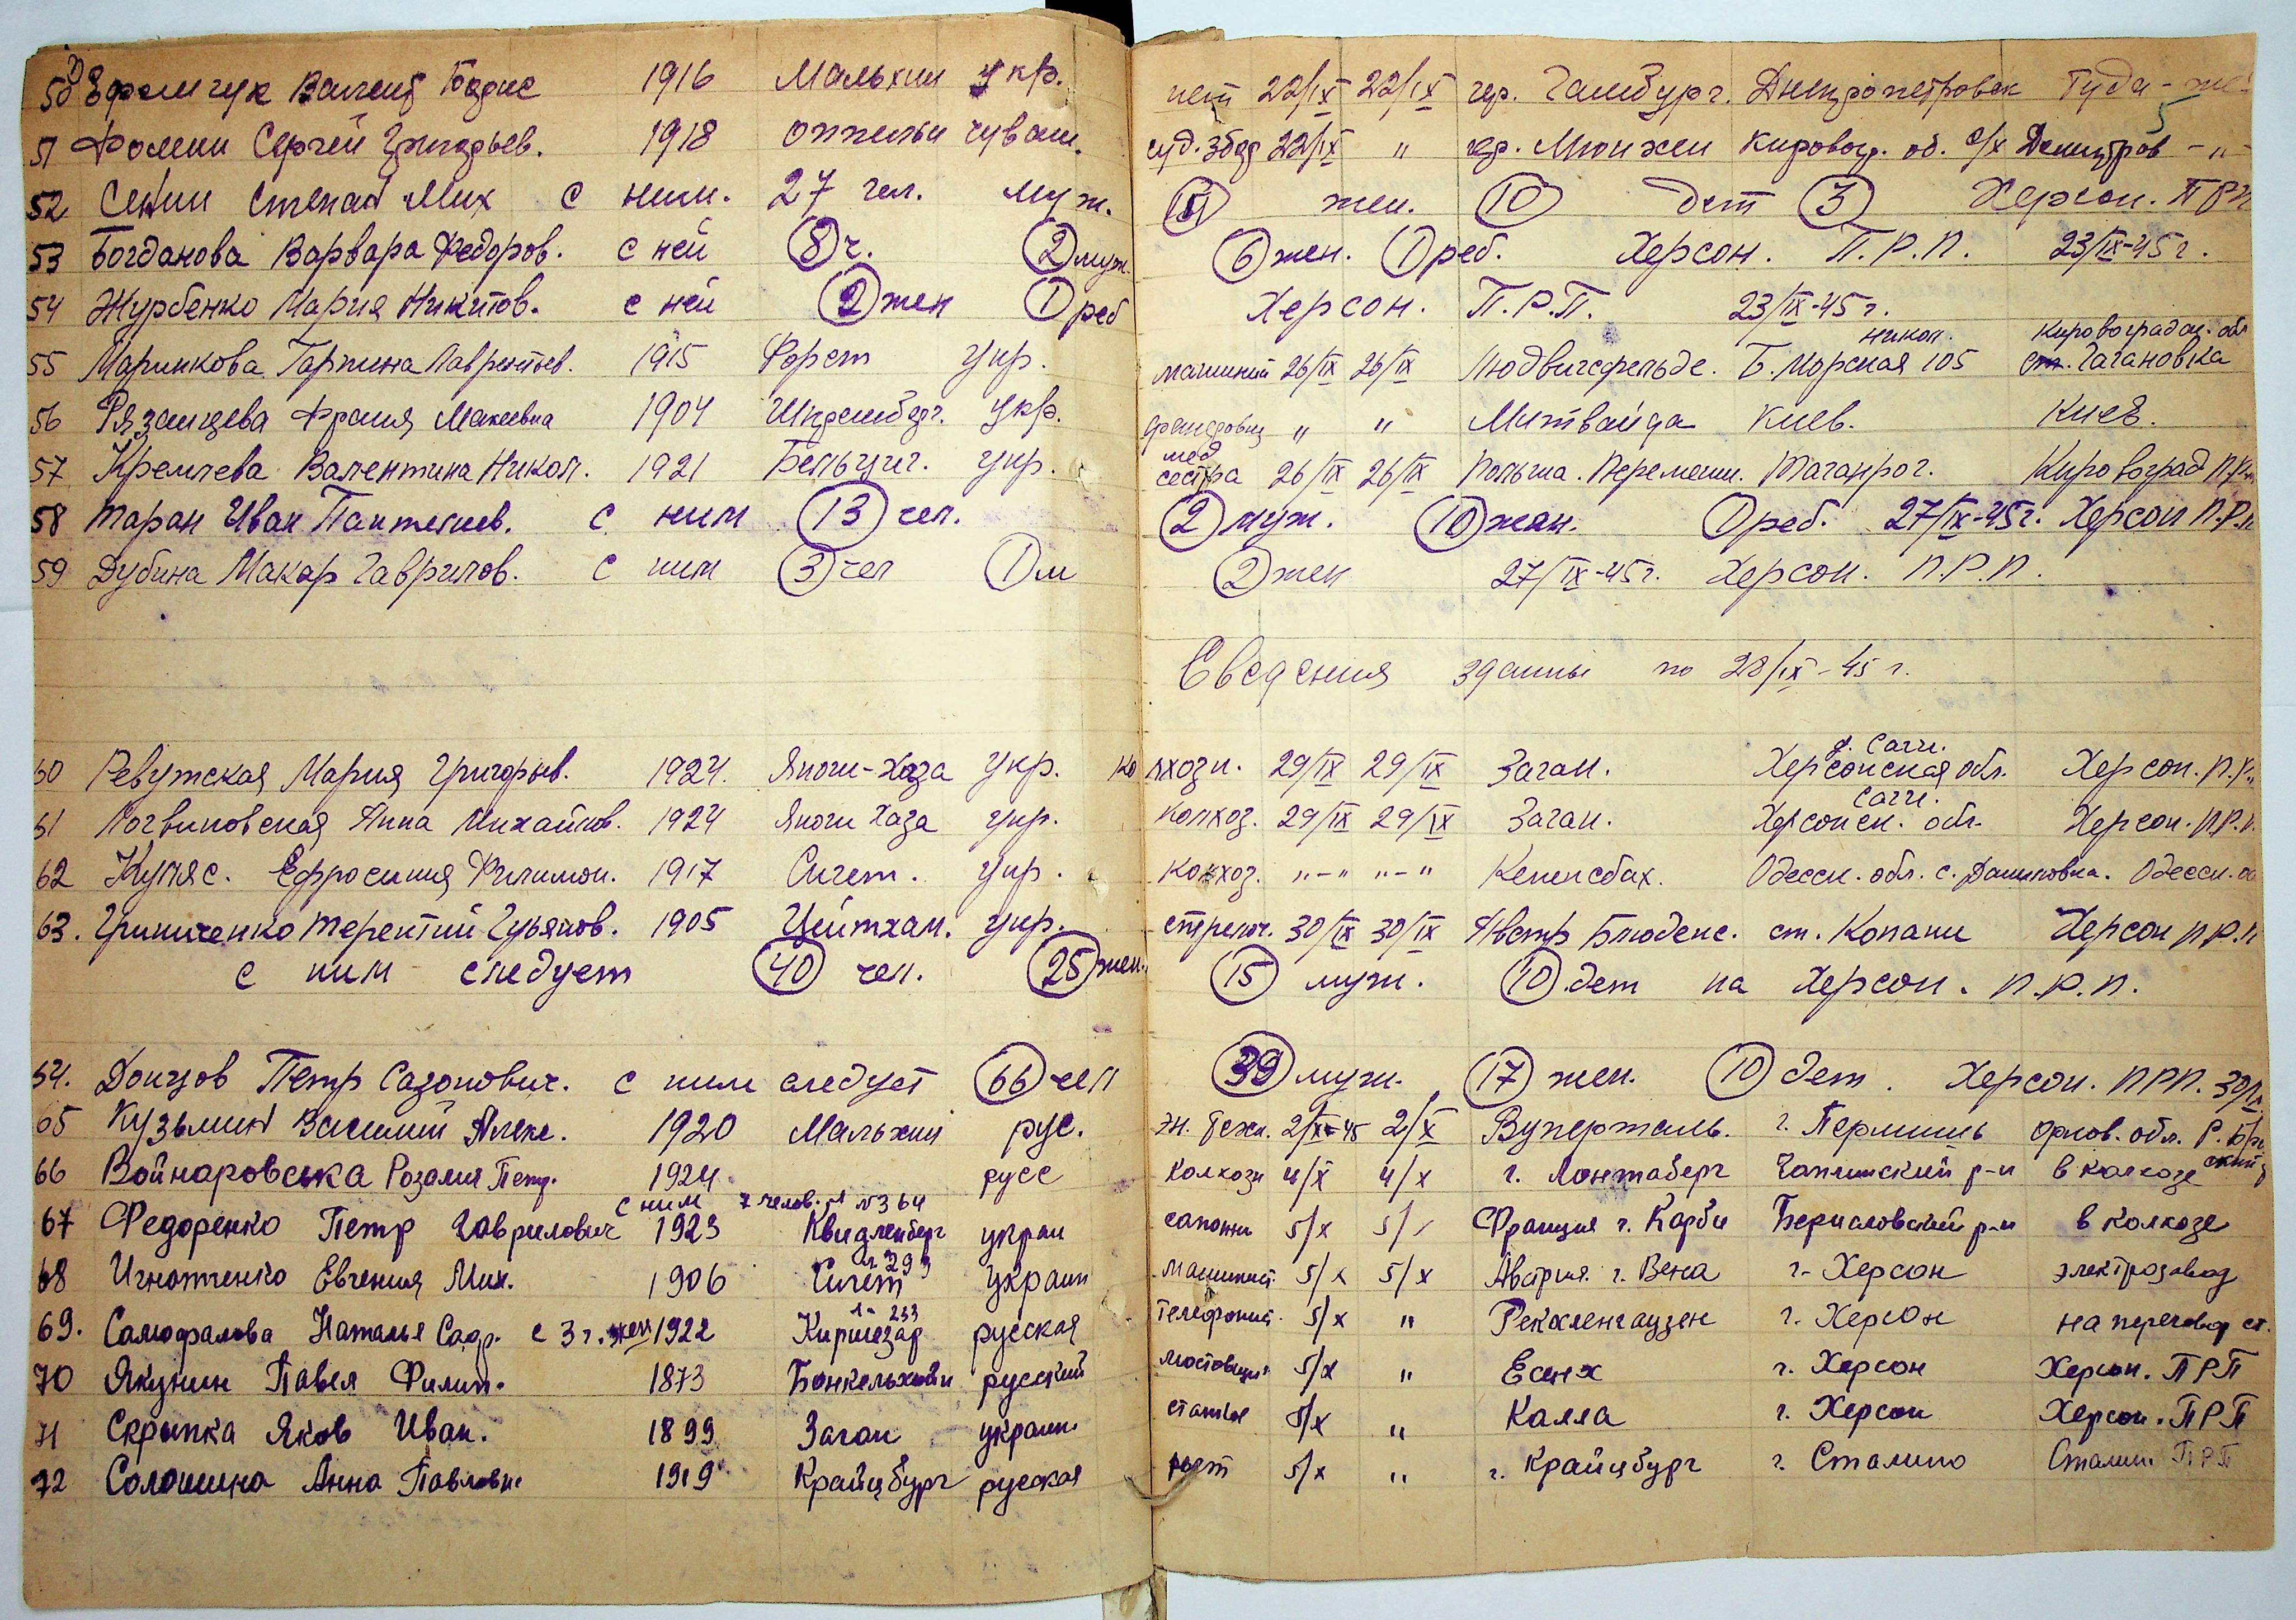 50 Ефремчук Валент Борис 1916 Мальхин укр. нет 22/IX 22/IX гор. Гамбург. Днепропетровск Туда-же
51 Фомин Сергей Григорьев. 1918 оппельн чуваш. 22/IX " гор. Мюнхен Кировогр. об. с/х Демитров -"-
52 Сенин Степан Мих с ним. 27 чел. муж. жен. 10 дет 3 Херсон. ПРП
53 Богданова Варвара Федоров. с ней 8 ч. 2 муж. 6 жен. 1 реб. Херсон. П.Р.П. 23/IX-45 г.
54 Журбенко Мария Никитов. с ней 2 жен 1 реб Херсон. П.Р.П. 23/IX-45 г.
никоп. Кировоградск. обл
55 Маринкова Гарпина Лаврентьев. 1915 Форст укр. 26/IX 26/IX Людвигсфельде. Б. Морская 105 ст. Гагановка
56 Рязанцева Франия Макеевна 1904 Шпремберг. укр. " " Митвайда Киев. Киев.
мед
57 Кремлева Валентина Никол. 1921 Бельциг. укр. сестра 26/IX 26/IX Польша. Перемыш. Таганрог. Кировоград П.Р.П
58 Таран Иван Пантелиев. с ним 13 чел. 2 муж. 10 жен. 1 реб. 27/IX-45г. Херсон П.Р.П
59 Дубина Макар Гаврилов. с ним 3 чел 1 м 2 жен 27/IX-45г. Херсон. П.Р.П.
Сведения зданны по 28/IX-45 г.
60 Ревутская Мария Григорьев. 1924. Яноги-Хаза укр. колхозн. 29/IX 29/IX Заган. Херсонская обл. Херсон. П.Р.
61 Логвиновская Анна Михайлов. 1924 Яноги Хаза укр. колхоз. 29/IX 29/IX Заган. Херсонск. обл. Херсон. П.Р.П
62 Купяс. Ефросиния Филимон. 1917 Сигет. укр. колхоз. "-" "-" Кенигсбах. Одесск. обл. с. Даниловка. Одесск. об
63. Гриниченко Терентий Гурьянов. 1905 Цейтхан. укр. стрелоч. 30/IX 30/IX Австр Блюденс. ст. Копани Херсон П.Р.П
с ним следует 40 чел. 25 жен. 15 муж. 10 дет на Херсон. П.Р.П.
64. Донцов Петр Сазонович. с ним следует 66 чел 39 муж. 17 жен. 10 дет. Херсон. ПРП. 30/IX
65 Кузьмин Василий Алекс. 1920 Мальхин рус. 2/X-45 2/X Вуперталь. г. Перемишль Орлов. обл.
66 Войнаровська Розалия Петр. 1924 русс колхозн 4/X 4/X г. Лонтаберг Чаплинский р-н в колхозе
с ним 7 челов. л №364
67 Федоренко Петр Гаврилович 1923 Квидленберг украин сапожн 5/X 5/ Франция г. Карби Бериславский р-н в колхозе
л. 299
68 Игнотченко Евгения Мих. 1906 Сигет украин машинист. 5/X 5/X Австрия. г. Вена г. Херсон электрозавод
л- 233
69. Самофалова Наталья Сидр. с 3 г. жен 1922 Киршезар русская телефонист. 5/X " Рекхленгаузен г. Херсон на переговор ст.
70 Якунин Павел Филип. 1873 Бонкельхайн русский мостовщик 5/X " Есенх г. Херсон Херсон. ПРП
71 Скрыпка Яков Иван. 1899 Заган украин. 5/X " Калла г. Херсон Херсон. ПРП
72 Солошина Анна Павловн 1919 Крайцбург русская нет 5/X " г. Крайцбург г. Сталино Сталин. ПРП